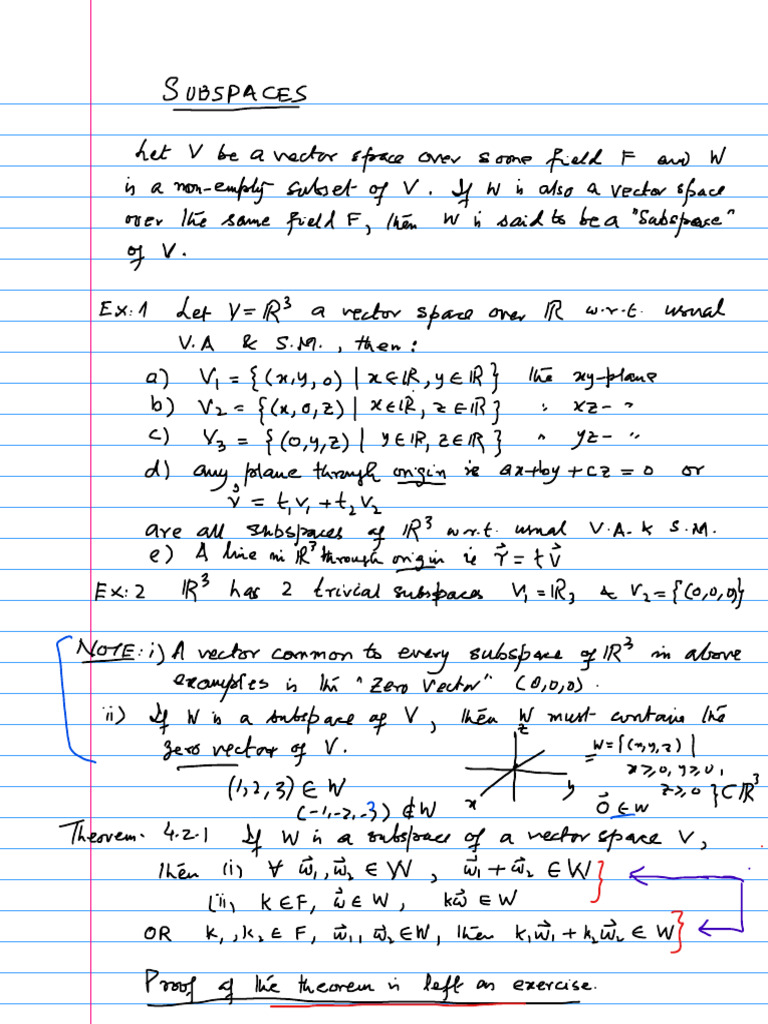 SUBSPACES
Let V be a vector space over some field F and W
is a non-empty subset of V. If W is also a vector space
over the same field F, then W is said to be a "Subspace"
of V.
Ex:1 Let V=ℝ³ a vector space over ℝ w.r.t. usual
V.A & S.M., then:
a) V₁ = {(x,y,0) | x∈ℝ, y∈ℝ} the xy-plane
b) V₂ = {(x,0,z) | x∈ℝ, z∈ℝ} " xz- "
c) V₃ = {(0,y,z) | y∈ℝ, z∈ℝ} " yz- "
d) any plane through origin ie ax+by+cz=0 or
v⃗ = t₁v₁+t₂v₂
are all subspaces of ℝ³ w.r.t. usual V.A. & S.M.
e) A line in ℝ³ through origin ie r⃗ = tv⃗
Ex:2 ℝ³ has 2 trivial subspaces V₁=ℝ₃ & V₂={(0,0,0)}
NOTE: i) A vector common to every subspace of ℝ³ in above
examples is the "Zero Vector" (0,0,0).
ii) If W is a subspace of V, then W must contain the
zero vector of V.
z
W={(x,y,z) |
x≥0, y≥0,
z≥0 } ⊂ ℝ³
x
y
0⃗ ∈ W
(1,2,3) ∈ W
(-1,-2,-3) ∉ W
Theorem. 4.2.1 If W is a subspace of a vector space V,
then (i) ∀ w⃗₁, w⃗₂ ∈ W, w⃗₁+w⃗₂ ∈ W}
(ii, k∈F, w⃗∈W, kw⃗ ∈ W
OR k₁, k₂ ∈ F, w⃗₁, w⃗₂ ∈W, then k₁w⃗₁+k₂w⃗₂ ∈ W}
Proof of the theorem is left as exercise.